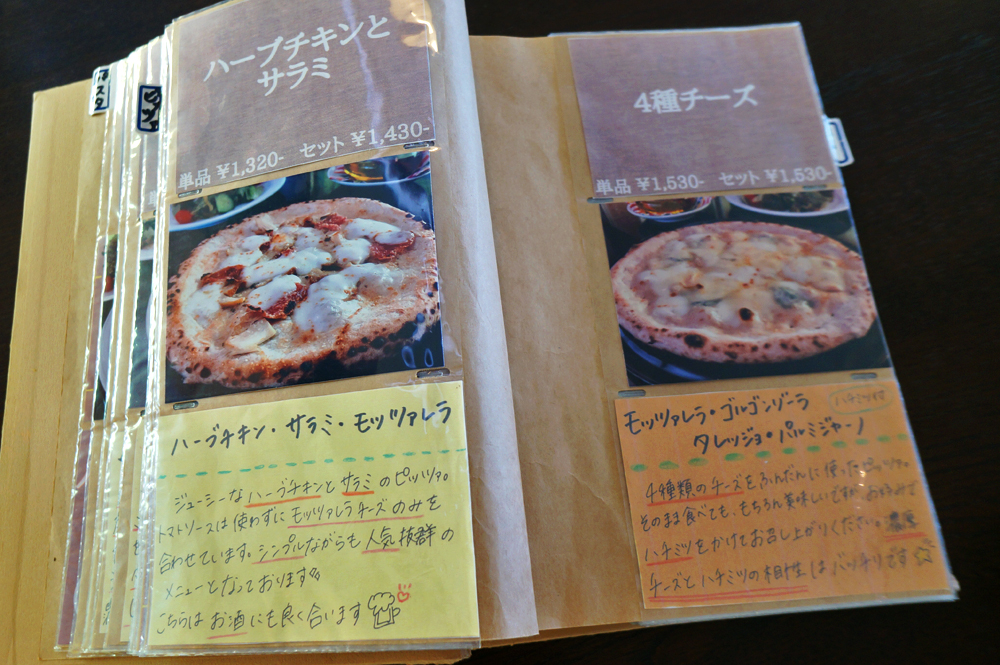 ハーブチキンと
サラミ
単品 ¥1,320- セット ¥1,430-
ハーブチキン・サラミ・モッツァレラ
ジューシーなハーブチキンとサラミのピッツァ。
トマトソースは使わずにモッツァレラチーズのみを
合わせています。シンプルながらも人気抜群の
メニューとなっております
こちらはお酒にも良く合います
4種チーズ
単品 ¥1,530- セット ¥1,530-
モッツァレラ・ゴルゴンゾーラ
ハチミツ付
タレッジョ・パルミジャーノ
4種類のチーズをふんだんに使ったピッツァ。
そのまま食べても、もちろん美味しいですが、お好みで
ハチミツをかけてお召し上がりください。濃厚
チーズとハチミツの相性はバッチリです